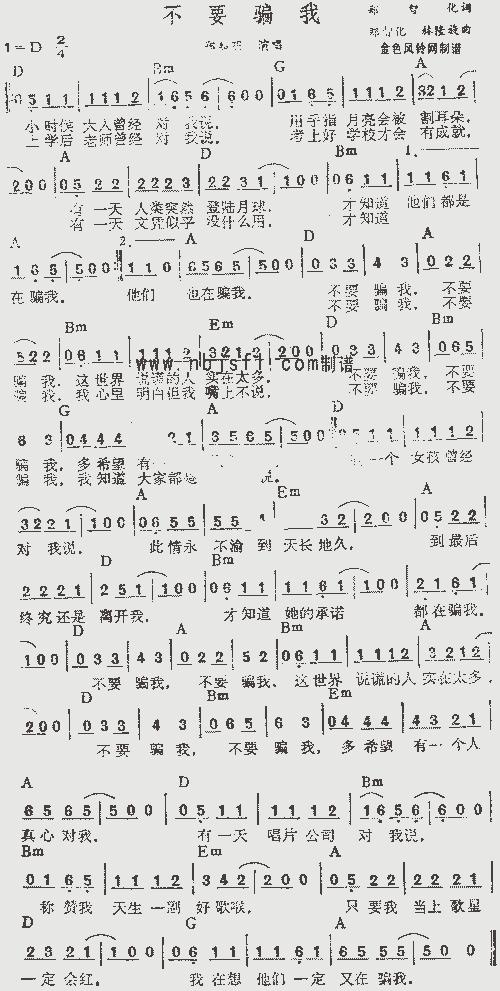 不要骗我
郑智化 词
1=D 2/4 演唱 郑智化 林隆旋曲
金色风铃网制谱
D Bm G A
5 1 1 1 1 1 2 1 6 5 6 6 0 0 0 1 6 5 1 1 1 2 3 2 1 2
小时候 大人曾经 对 我说, 用手指 月亮会被 割耳朵,
上学后 老师曾经 对 我说, 考上好 学校才会 有成就,
A D Bm 1.
2 0 0 0 5 2 2 2 2 2 3 2 2 3 1 1 0 0 0 6 1 1 1 1 6 1
有一天 人类突然 登陆月球, 才知道 他们都是
有一天 文凭似乎 没什么用, 才知道
A 2. A D A
1 6 5 5 0 0 1 1 0 6 5 6 5 5 0 0 0 3 3 4 3 0 2 2
在骗我, 他们 也在骗我, 不要 骗我, 不要
不要 骗我, 不要
Bm Em D Bm
5 2 2 0 6 1 1 1 1 1 2 3 2 1 2 2 0 0 0 3 3 4 3 0 6 5
www.nbjsfl.com制谱
骗 我, 这世界 说谎的人 实在太多, 不要 骗我, 不要
骗 我, 我心里 明白但我 嘴上不说, 不要 骗我, 不要
G A D
6 3 0 4 4 4 2 1 3 5 6 5 5 0 0 0 5 1 1 1 1 1 2
骗 我, 多希望 有 一个 女孩曾经
骗 我, 我知道 大家都是 说,
A Em A
3 2 2 1 1 0 0 0 6 5 5 5 5 3 2 2 0 0 0 5 2 2
对 我说, 此情永 不渝 到 天长地久, 到最后
D Bm
2 2 2 1 2 5 1 1 0 0 0 6 1 1 1 1 6 1 1 0 0 2 1 6 1
终究还是 离开我, 才知道 她的承诺 都在骗我,
D A Bm A
1 0 0 0 3 3 4 3 0 2 2 5 2 0 6 1 1 1 1 1 2 3 2 1 2
不要 骗我, 不要 骗我, 这世界 说谎的人 实在太多,
D Bm Em
2 0 0 0 3 3 4 3 0 6 5 6 3 0 4 4 4 4 3 2 1
不要 骗 我, 不要 骗 我, 多希望 有一个人
A D Bm
6 5 6 5 5 0 0 0 5 1 1 1 1 1 2 1 6 5 6 6 0 0
真心对我, 有一天 唱片公司 对 我说,
Bm Em A
0 1 6 5 1 1 1 2 3 4 2 2 0 0 0 5 2 2 2 2 2 1
称赞我 天生一副 好歌喉, 只要我 当上歌星
D G A
2 3 2 1 1 0 0 0 6 1 1 1 1 6 1 6 5 5 5 5 0 0
一定会红, 我在想 他们一定 又在骗我。